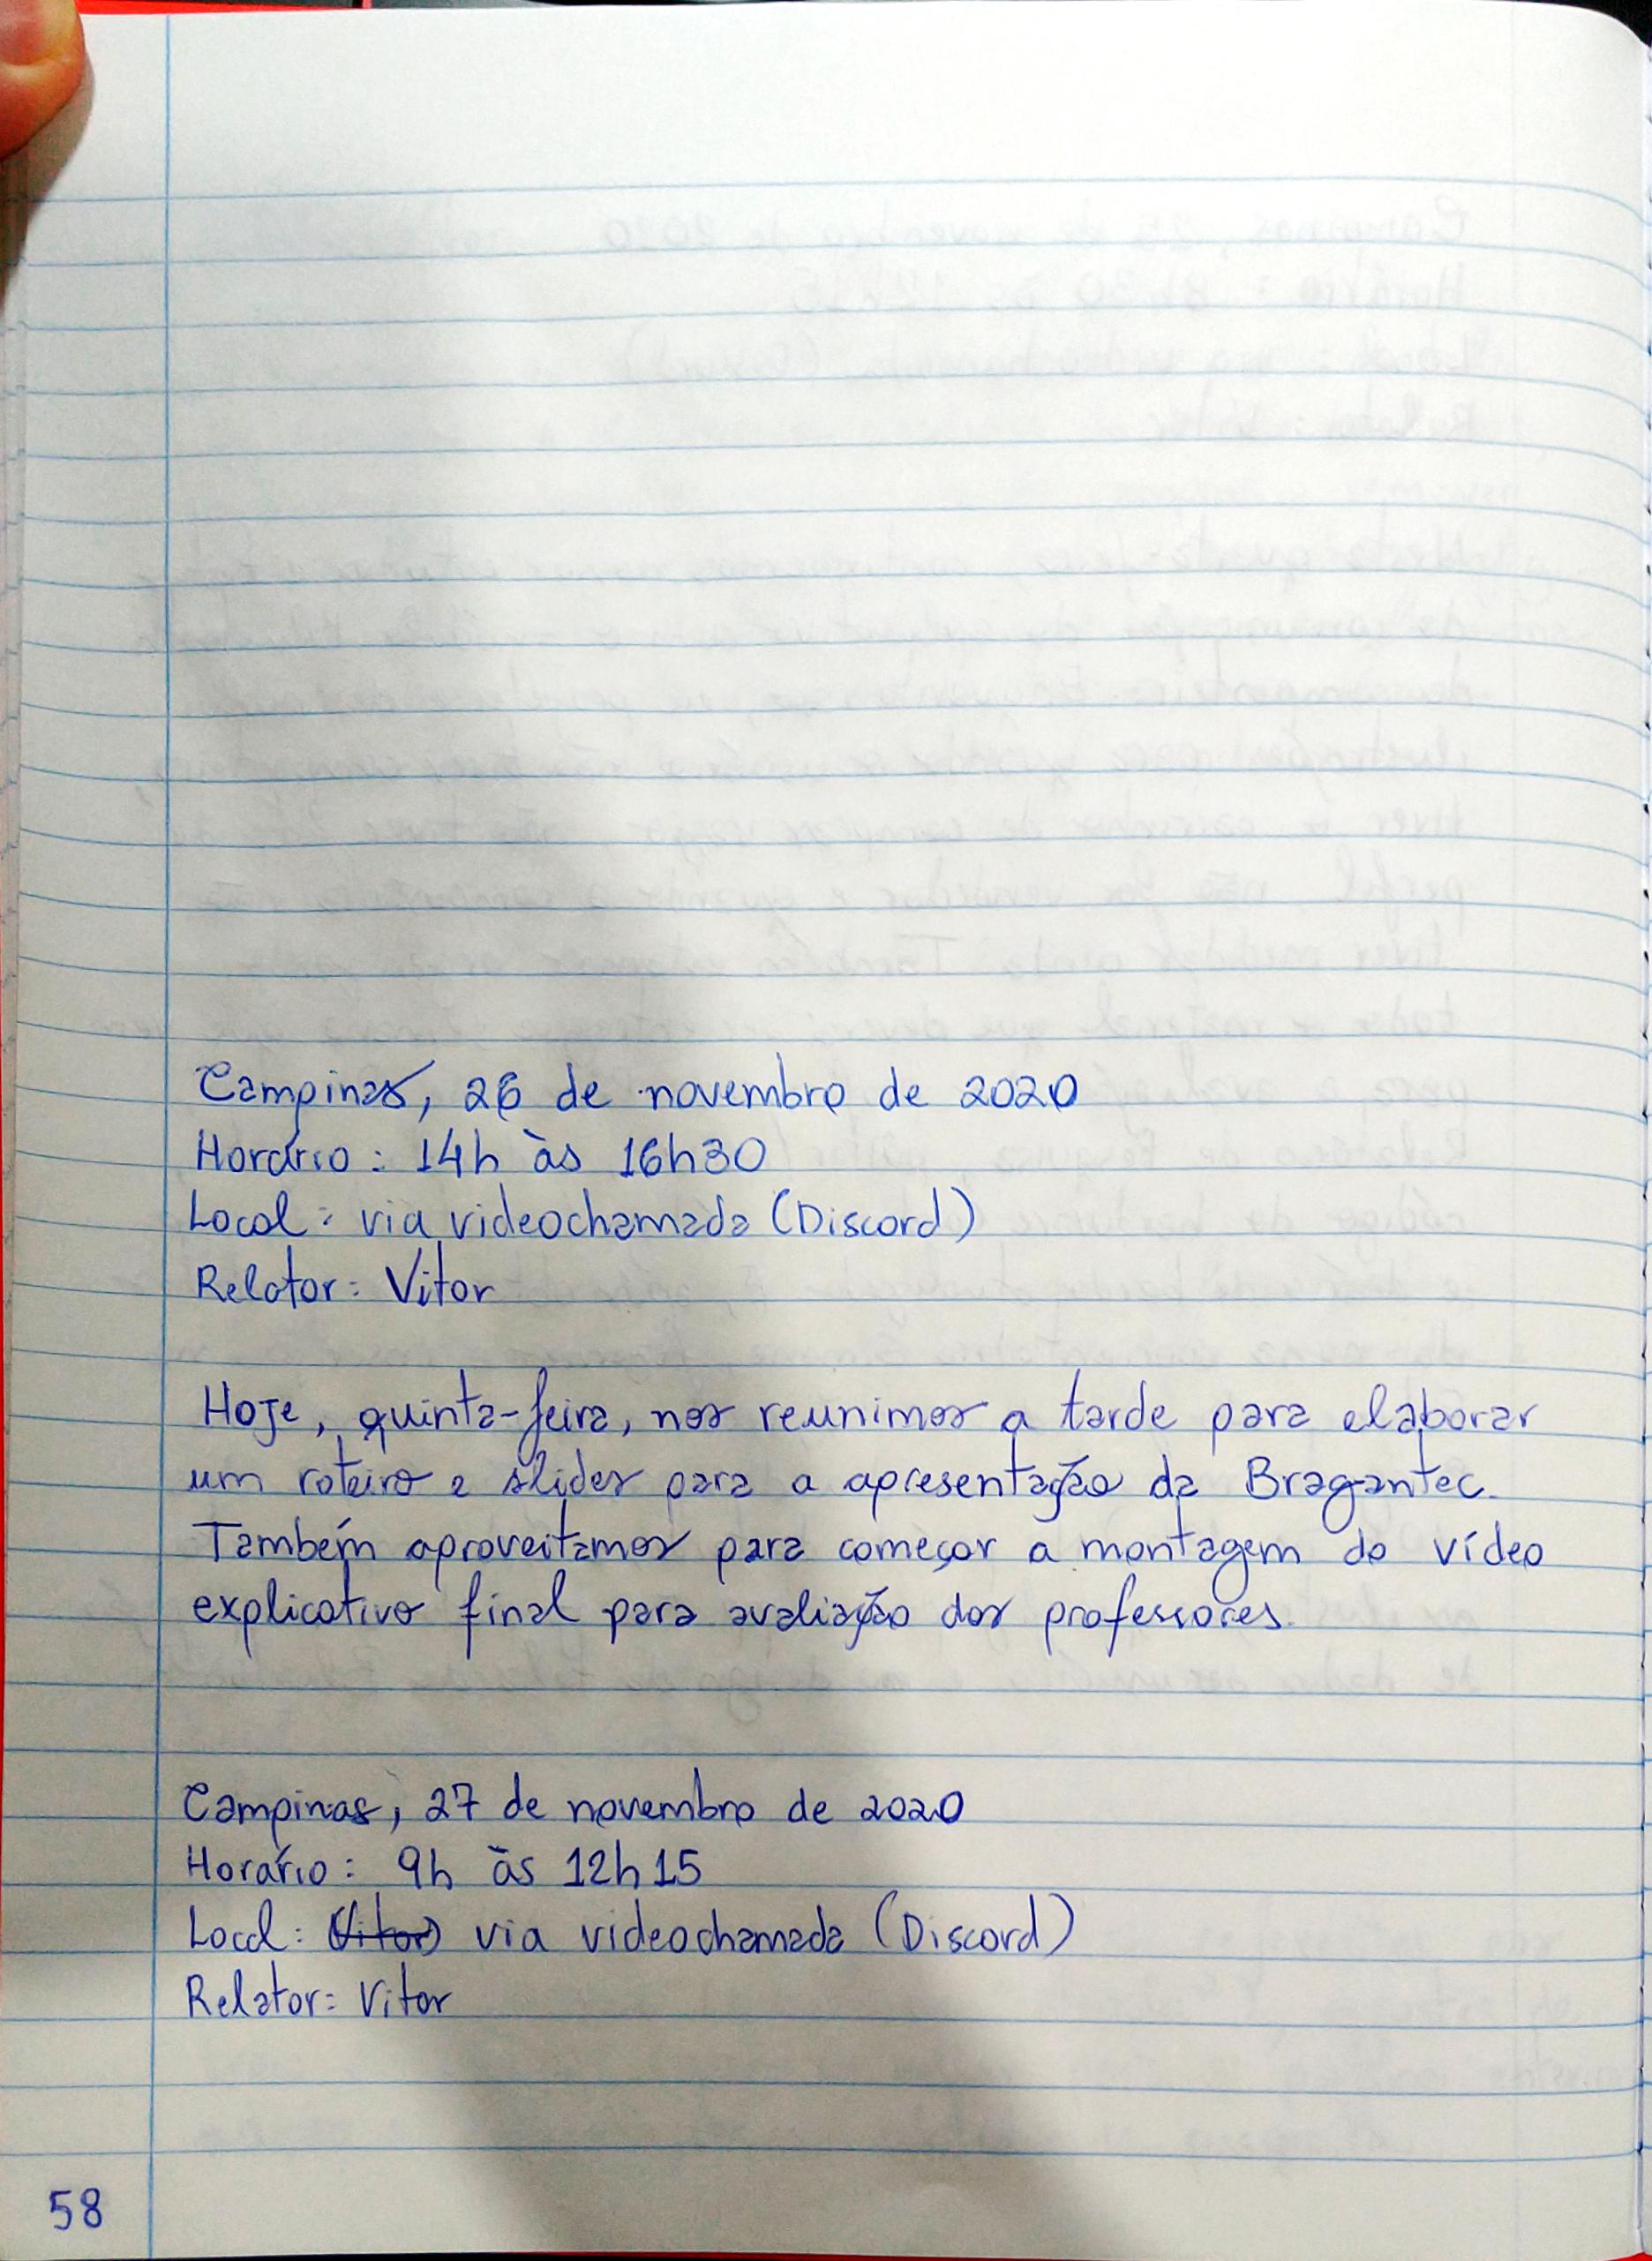 Campinas, 26 de novembro de 2020
Horário: 14h às 16h30
Local: via videochamada (Discord)
Relator: Vitor
Hoje, quinta-feira, nos reunimos a tarde para elaborar
um roteiro e slides para a apresentação da Bragantec.
Também aproveitamos para começar a montagem do vídeo
explicativo final para avaliação dos professores.
Campinas, 27 de novembro de 2020
Horário: 9h às 12h15
Local: (Vitor) via videochamada (Discord)
Relator: Vitor
58